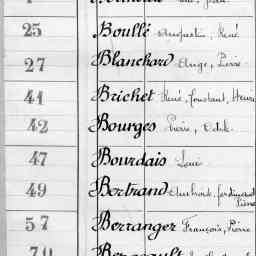 25 Boullé Augustin, René
27 Blanchard Ange, Pierre
41 Brichet René, Constant, Henri
42 Bourges Pierre,
47 Bourdais Louis
49 Bertrand Ferdinand
Pierre
57 Berranger François, Pierre
70